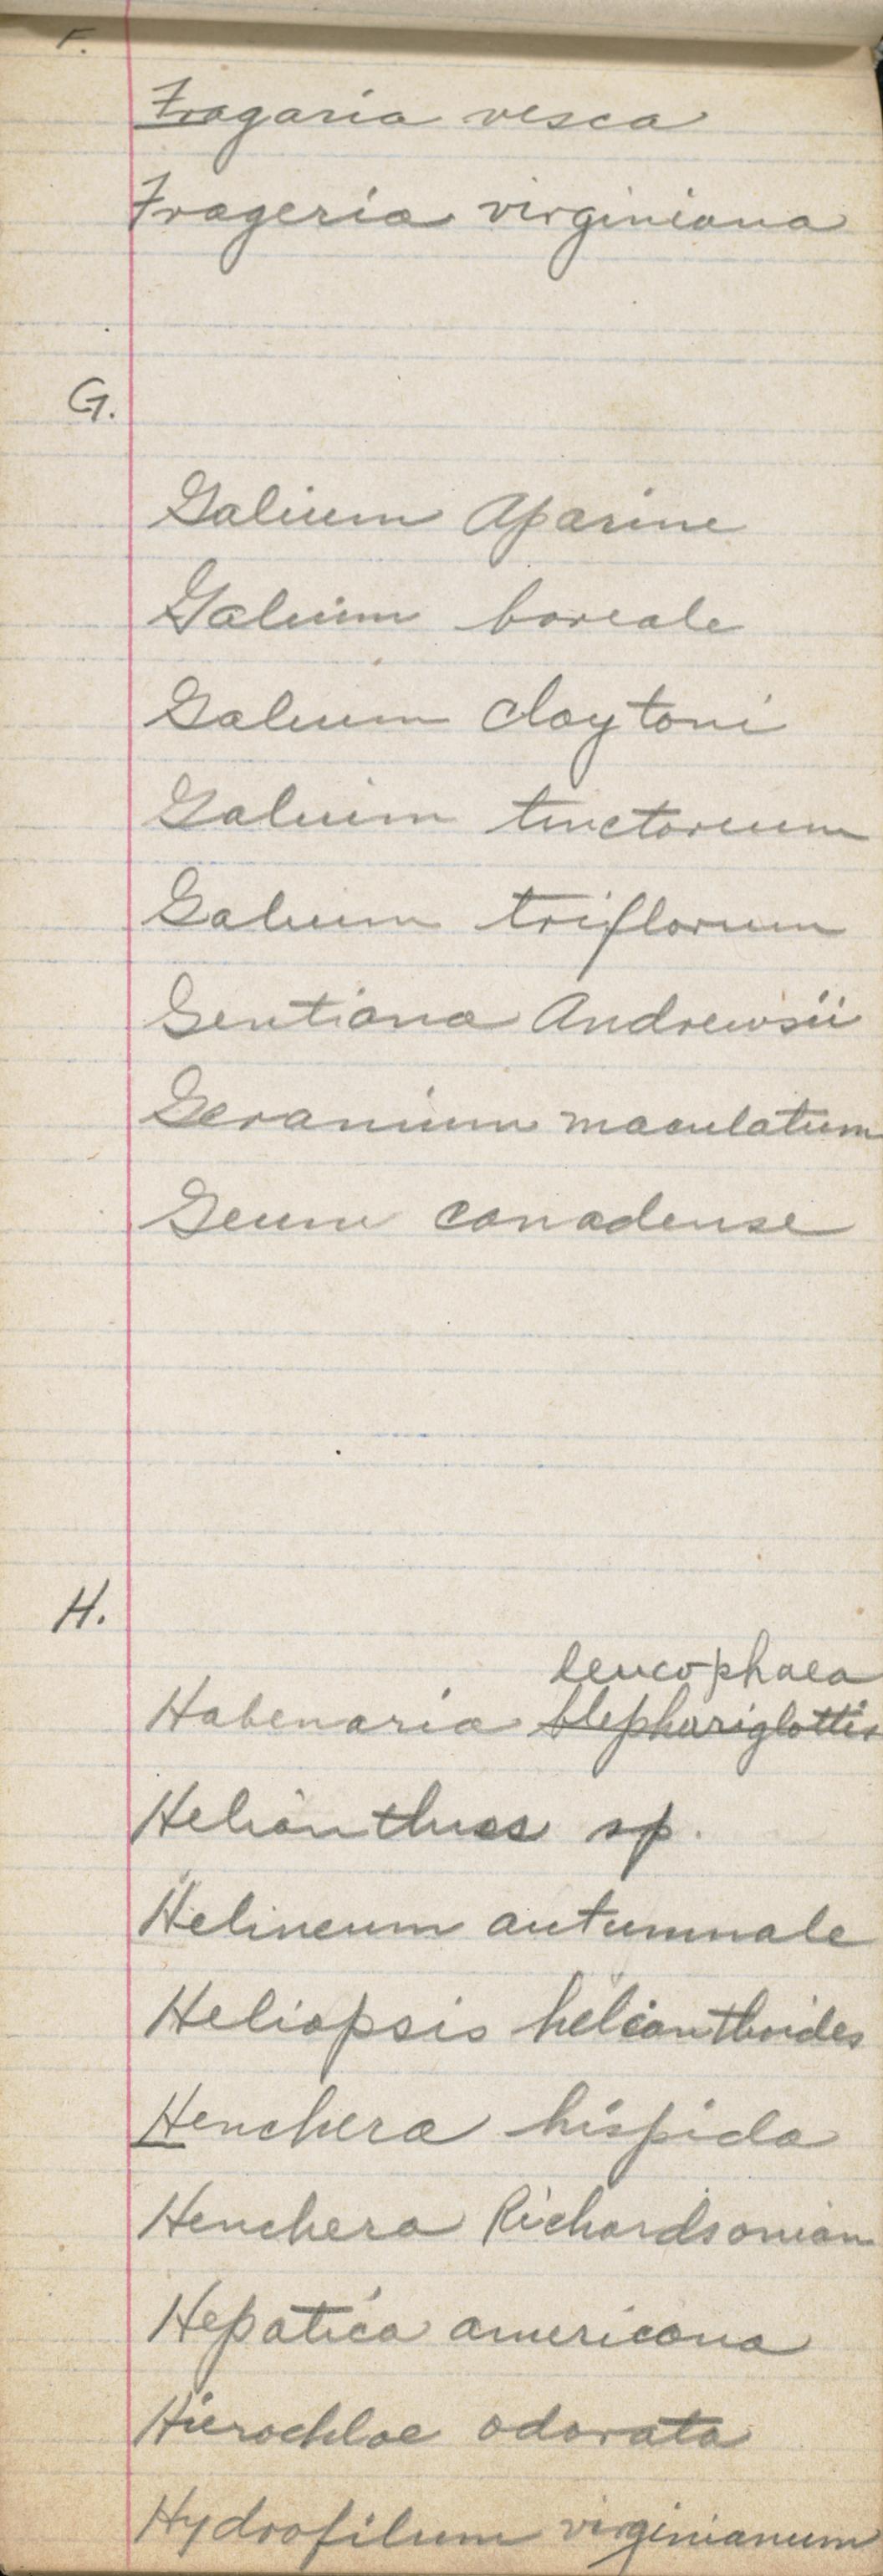 F.
Fragaria vesca
Frageria virginiana
G.
Galium Aparine
Galium boreale
Galium Claytoni
Galium tinctorium
Galium triflorum
Gentiana Andrewsii
Geranium maculatum
Geum canadense
H.
leucophaea
Habenaria blephariglottis
Helianthus sp.
Helineum autumnale
Heliopsis helianthoides
Henchera hispida
Henchera Richardsonian
Hepatica americana
Hierochloe odorata
Hydrofilum virginianum